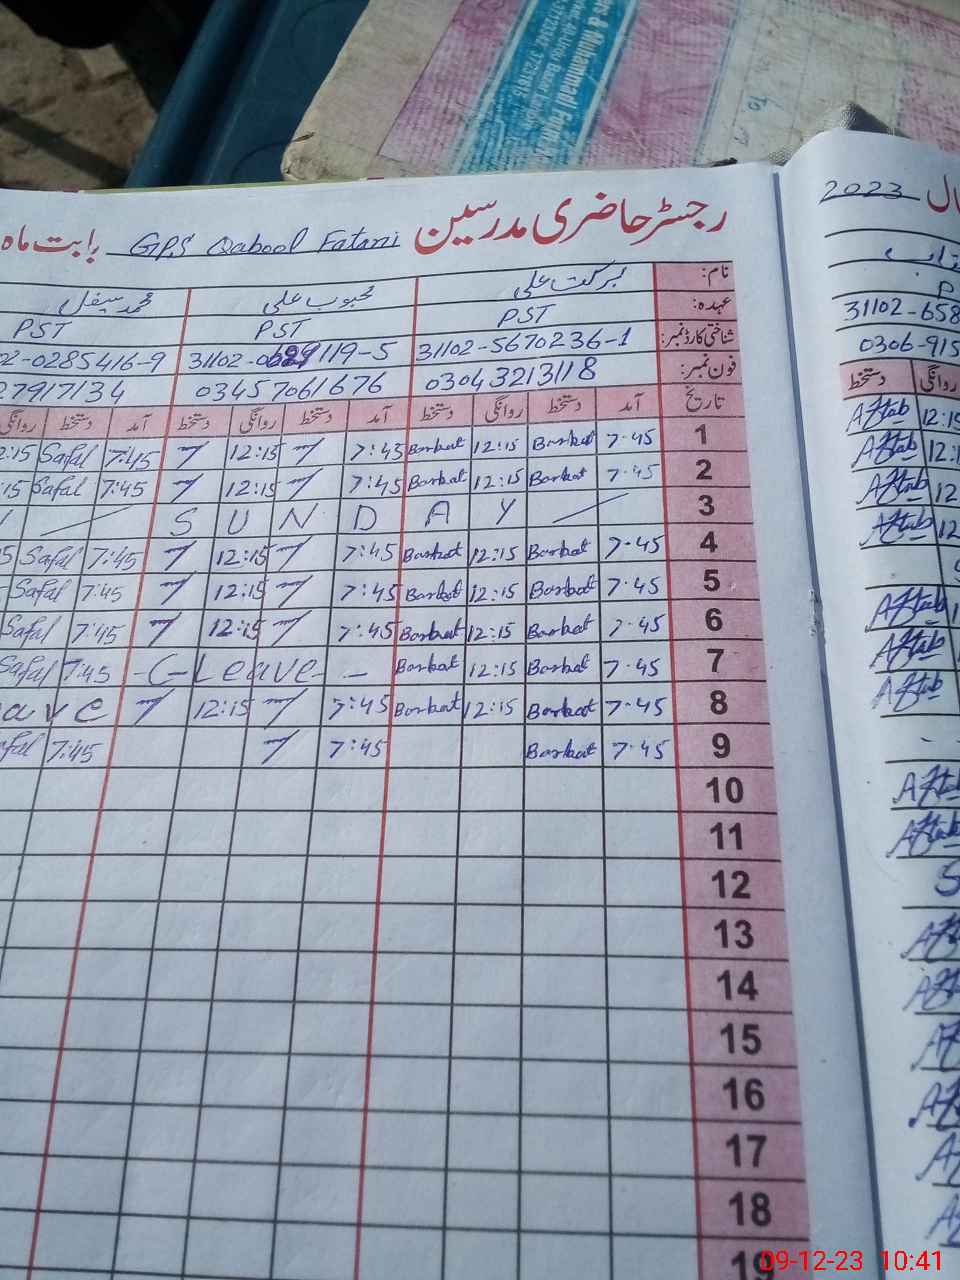 رجسٹر حاضری مدرسین GPS Qabool Fatani بابت ماہ
نام: برکت علی محبوب علی محمد سیفل
عہدہ: PST PST PST
شناختی کارڈ نمبر: 31102-5670236-1 31102-0689119-5 02-0285416-9
فون نمبر: 03043213118 03457061676 27917134
تاریخ آمد دستخط روانگی دستخط آمد دستخط روانگی دستخط آمد دستخط روانگی
1 7.45 Barkat 12:15 Barkat 7:45 12:15 7:45 Safal 2:15
2 7.45 Barkat 12:15 Barkat 7:45 12:15 7:45 Safal :15
3 SUNDAY
4 7.45 Barkat 12:15 Barkat 7:45 12:15 7:45 Safal 5
5 7.45 Barkat 12:15 Barkat 7:45 12:15 7:45 Safal
6 7.45 Barkat 12:15 Barkat 7:45 12:15 7:45 Safal
7 7.45 Barkat 12:15 Barkat - C-Leave - 7:45 Safal
8 7.45 Barkat 12:15 Barkat 7:45 12:15 ave
9 7.45 Barkat 7:45 7:45 afal
10
11
12
13
14
15
16
17
18
19
سال 2023
P
31102-658
0306-915
دستخط روانگی
Aftab 12:15
Aftab 12:1
Aftab 12
Aftab 12
S
Aftab 1
Aftab
Aftab
- -
Aftab
Aftab
S
09-12-23 10:41